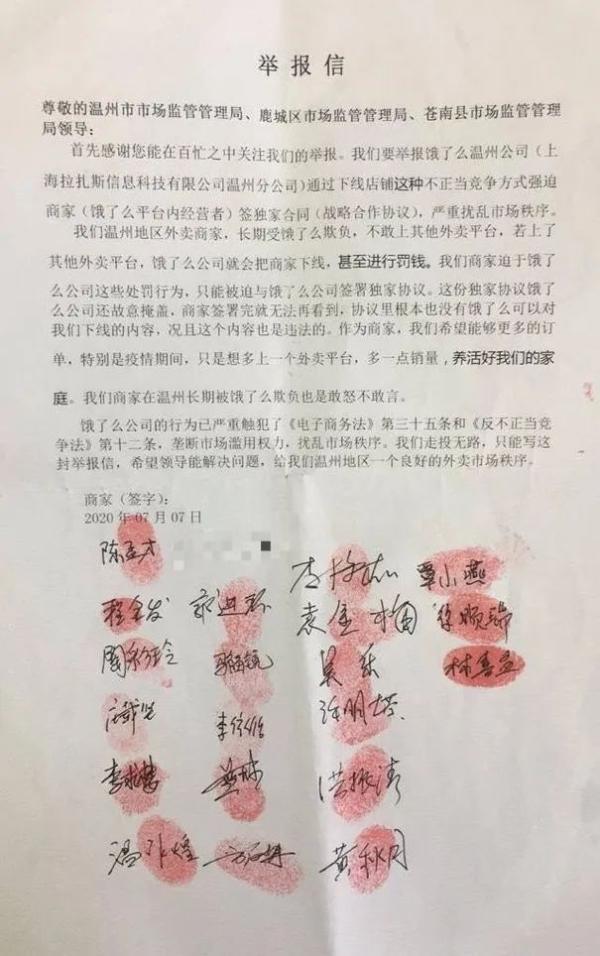 举报信
尊敬的温州市市场监管管理局、鹿城区市场监管管理局、苍南县市场监管管理
局领导:
首先感谢您能在百忙之中关注我们的举报。我们要举报饿了么温州公司(上
海拉扎斯信息科技有限公司温州分公司)通过下线店铺这种不正当竞争方式强迫
商家(饿了么平台内经营者)签独家合同(战略合作协议),严重扰乱市场秩序。
我们温州地区外卖商家,长期受饿了么欺负,不敢上其他外卖平台,若上了
其他外卖平台,饿了么公司就会把商家下线,甚至进行罚钱。我们商家迫于饿了
么公司这些处罚行为,只能被迫与饿了么公司签署独家协议。这份独家协议饿了
么公司还故意掩盖,商家签署完就无法再看到,协议里根本也没有饿了么可以对
我们下线的内容,况且这个内容也是违法的。作为商家,我们希望能够更多的订
单,特别是疫情期间,只是想多上一个外卖平台,多一点销量,养活好我们的家
庭。我们商家在温州长期被饿了么欺负也是敢怒不敢言。
饿了么公司的行为已严重触犯了《电子商务法》第三十五条和《反不正当竞
争法》第十二条,垄断市场滥用权力,扰乱市场秩序。我们走投无路,只能写这
封举报信,希望领导能解决问题,给我们温州地区一个良好的外卖市场秩序。
商家(签字):
2020年07月07日
覃小燕
袁金梅
黄秋月